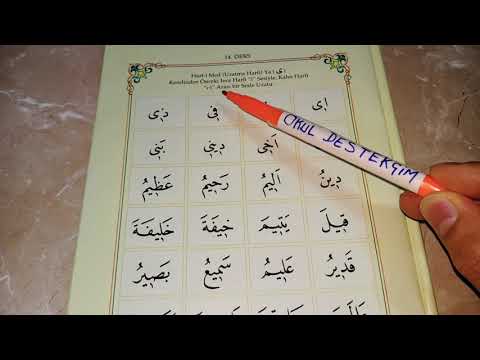 14. DERS
Harf-i Med (Uzatma Harfi) Ya (ى)
Kendinden Önceki İnce Harfi "i" Sesiyle, Kalın Harfi
"ı-i" Arası bir Sesle Uzatır
اِى فِى ذِى
اَخِى دِينِى بَنِى
دِينُ اَلِيمُ رَحِيمُ عَظِيمُ
قِيلَ يَتِيمَ خِيفَةَ خَلِيفَةَ
قَدِيرُ عَلِيمُ سَمِيعُ بَصِيرُ
OKUL DESTEKÇİM